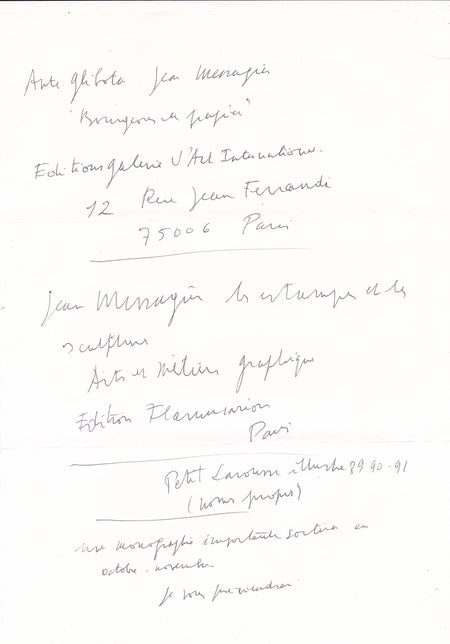 Ante Glibota Jean Messagier
"Bourgeons de papier"
Editions galerie d'Art International.
12 Rue Jean Ferrandi
75006 Paris
Jean Messagier les estampes et les
sculptures
Arts et Métiers graphique
Edition Flammarion
Paris
Petit Larousse illustré 89 90-91
(noms propres)
une monographie importante sortira en
octobre-novembre
je vous préviendrai